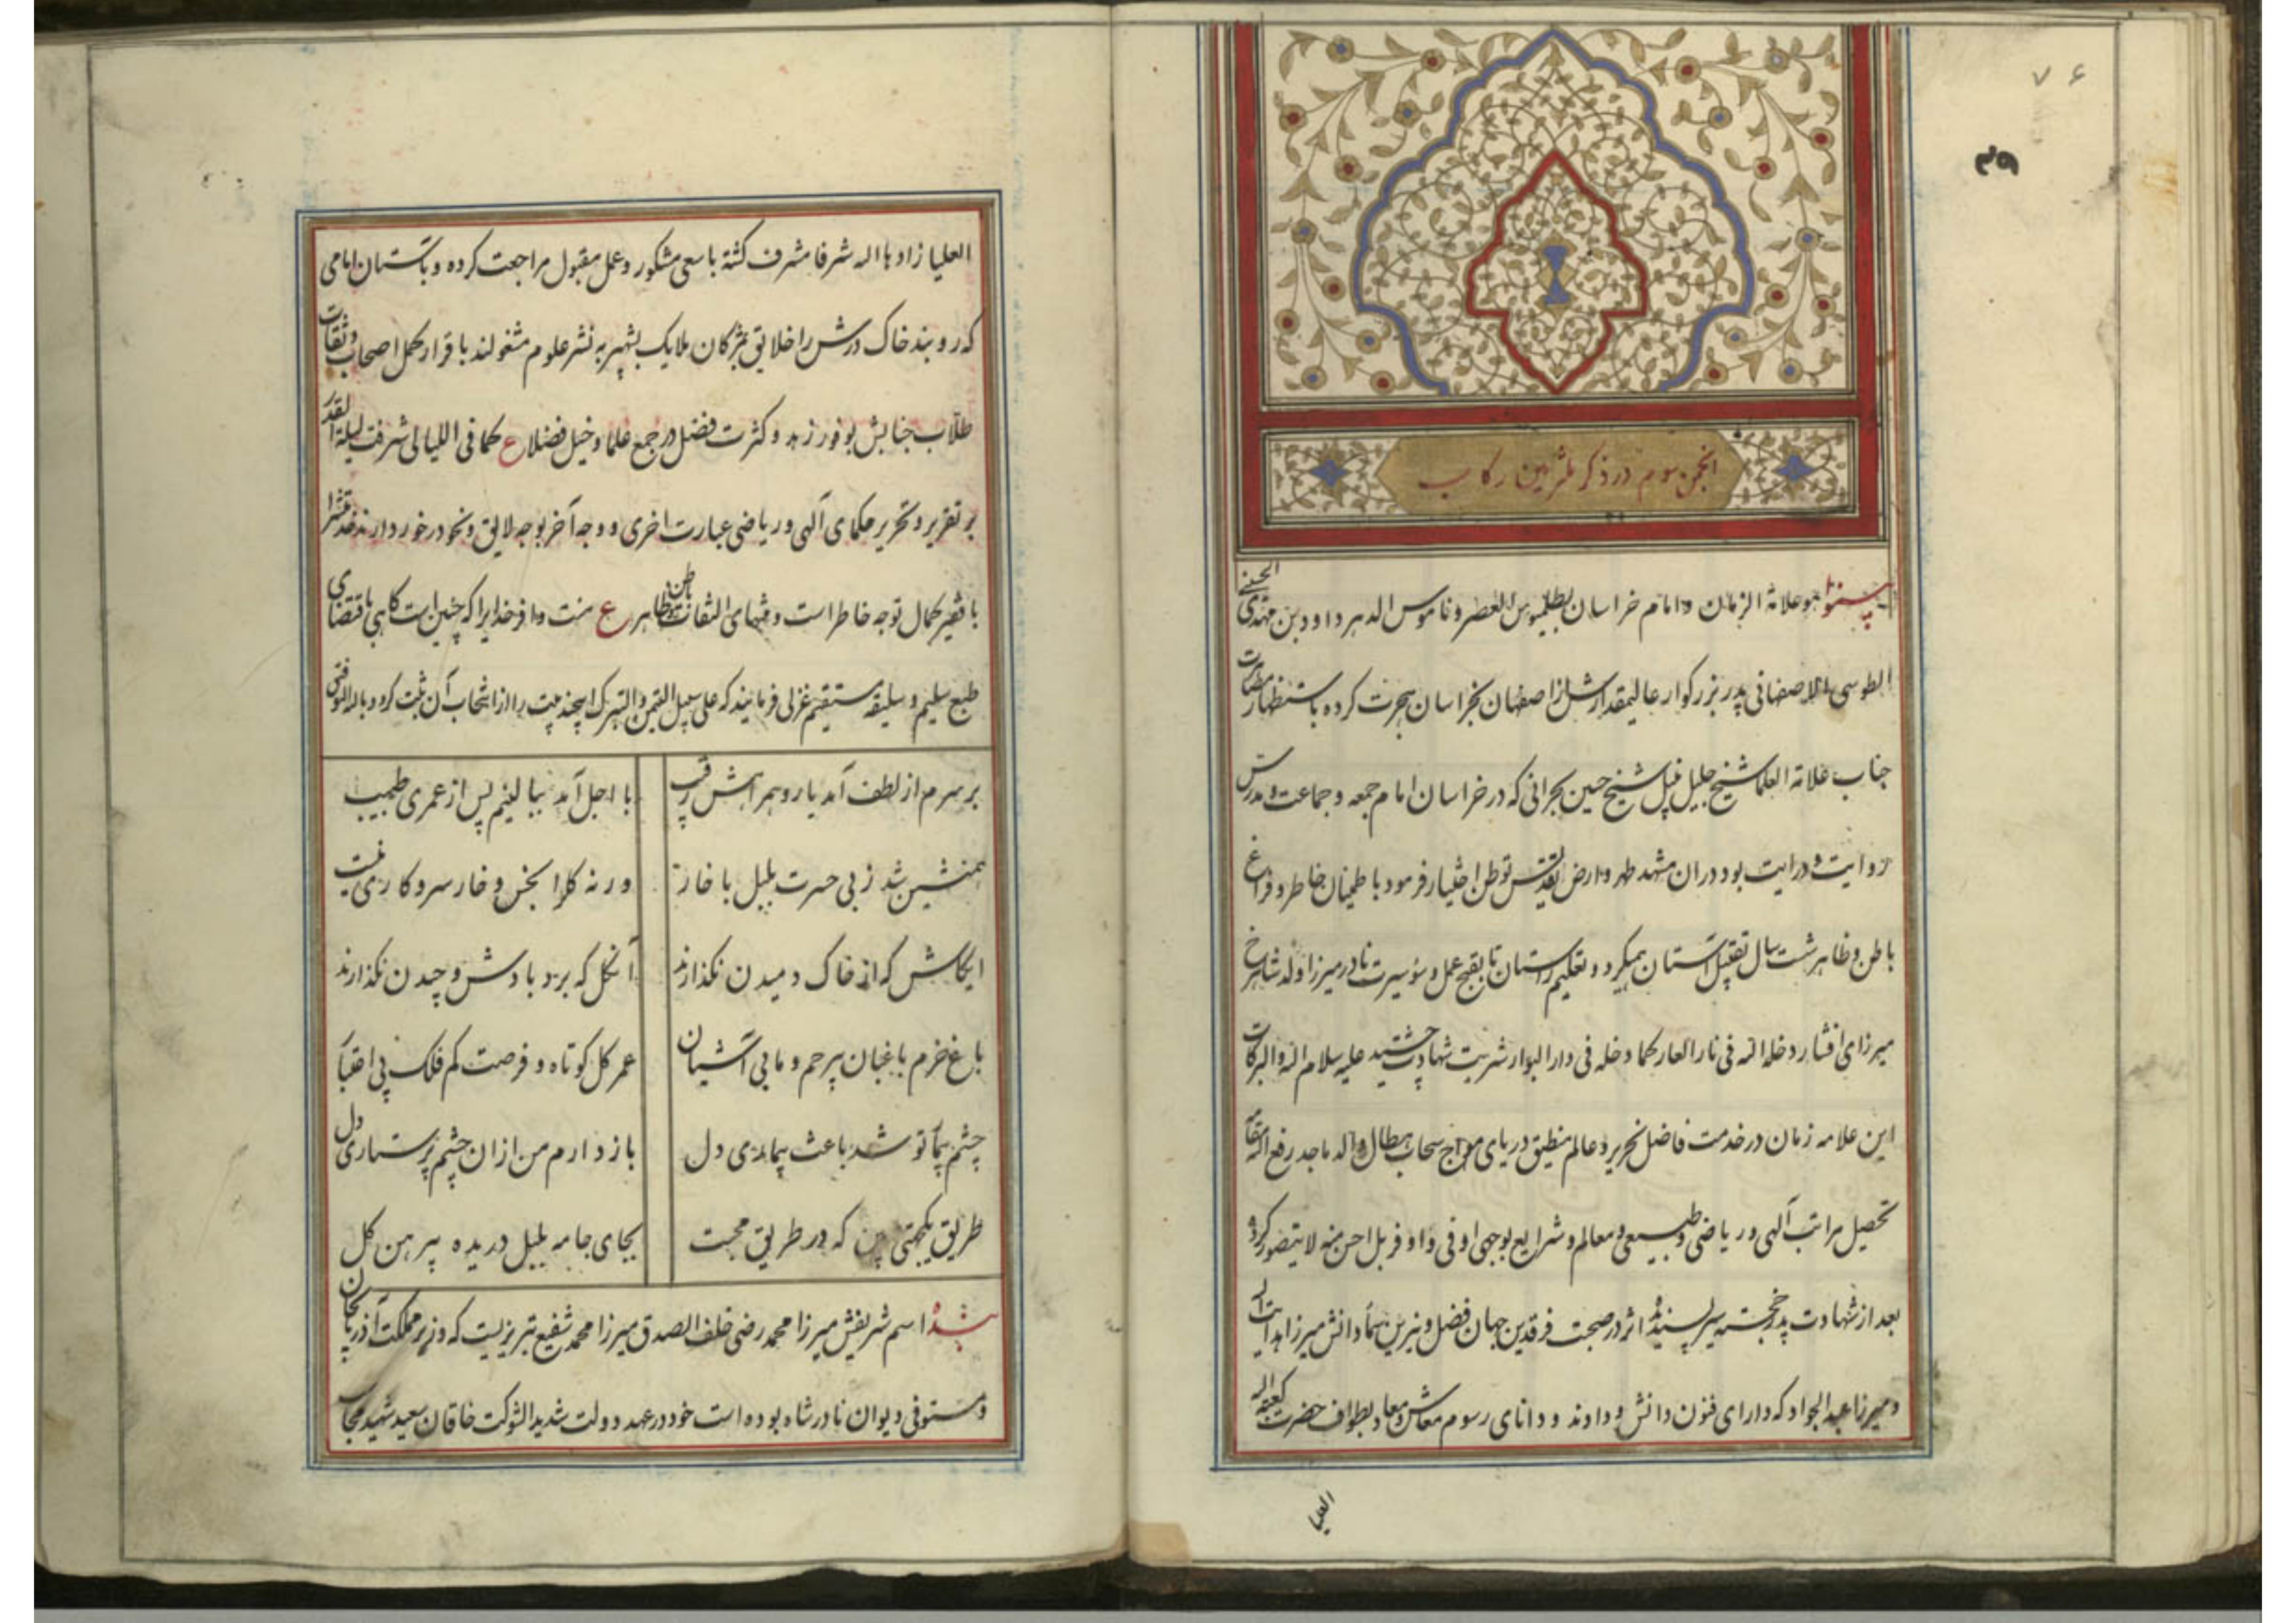 ۷۶
انجمن سوم در ذکر ملتزمین رکاب
هو علامة الزمان و امام خراسان بطلمیوس العصر و ناموس الدهر داود بن مهدی الحسینی
الطوسی الاصفهانی پدر بزرکوار عالیمقدارش از اصفهان بخراسان هجرت کرده باستظهار
جناب علامة العلما شیخ جلیل نبیل شیخ حسین بحرانی که در خراسان امام جمعه و جماعت و مدرس
روایت و درایت بود در ان مشهد طهر و ارض تقدس توطن اختیار فرمود با طمینان خاطر و فراغ
باطن و ظاهر شت سال تقبیل آستان همیکرد و تعلیم راستان تا بقبح عمل و سؤ سیرت نادر میرزا ولد شاهرخ
میرزای افشار دخله الله فی نار العار کما دخله فی دار البوار شربت شهادت چشید علیه سلام الله و البرکات
این علامه زمان در خدمت فاضل نحریر و عالم منطیق دریای مواج سحاب هطال والد ماجد رفع الله مقامه
تحصیل مراتب آلهی و ریاضی و طبیعی و معالم و شرایع بوجهی اوفی و اوفر بل احسن منه لا یتصور کرده
بعد از شهادت پدر خجسته سیر پسندیده اثر در صحبت فرقدین جهان فضل و نیرین سمآ دانش میرزا هدایت الله
و میرزا عبدالجواد که دارای فنون دانش و دادند و دانای رسوم معاش و معاد بطواف حضرت کعبة الله
العلیا
العلیا زادها الله شرفا مشرف کشته با سعی مشکور و عمل مقبول مراجعت کرده و بآستان امامی
که روبند خاک درش را خلایق بمژکان ملایک بشهپر به نشر علوم مشغولند باقرار کمل اصحاب و ثقات
طلاب جنابش بوفور زهد و کثرت فضل در جمع علما و خیل فضلا ع کما فی اللیالی شرفت لیلة القدر
بر تقریر و تحریر حکمای آلهی و ریاضی عبارت اخری و وجه آخر بوجه لایق و نحو درخور دارند
با فقیر کمال توجه خاطر است و منتهای التفات باطن و ظاهر ع منت وافر خدایرا که چنین است کاهی باقتضای
طبع سلیم و سلیقه مستقیم غزلی فرمایند که علی سبیل التیمن و التبرک اینچند بیت را از انتخاب آن ثبت کرد و بالله التوفیق
بر سرم از لطف آمد یار و همراهش رقیب	یا اجل آمد ببالینم پس از عمری طبیب
همنشین شد ز پی حسرت بلبل با خار	ورنه کلرا بخس و خار سر و کاری نیست
ایکاش که از خاک دمیدن نکذارند	آنکل که برد بادش و چیدن نکذارند
باغ خرم باغبان پر رحم و ما بی آشیان	عمر کل کوتاه و فرصت کم فلک بی اعتبار
چشم بیمآر تو شد باعث بیماری دل	باز دارم من از ان چشم پرستاری دل
طریق یکجهتی بین که در طریق محبت	بجای جامه بلبل دریده پیرهن کل
بنده اسم شریفش میرزا محمد رضی خلف الصدق میرزا محمد شفیع تبریزیست که وزیر مملکت آذربایجان
و مستوفی دیوان نادرشاه بوده است خود در عهد دولت شدید الشوکت خاقان سعید شهید